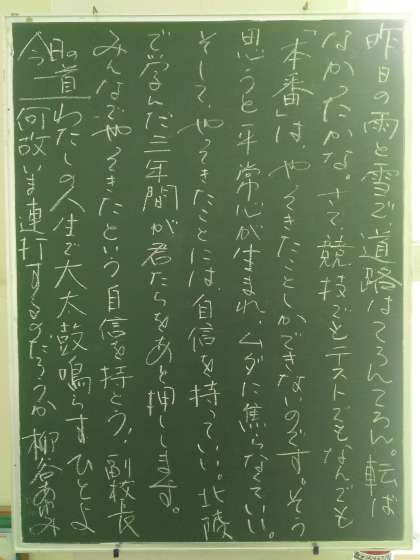 昨日の雨と雪で、道路はてろんてろん。転ば
なかったかな。さて競技でもテストでもなんでも
「本番」は、やってきたことしかできないのです。そう
思うと平常心が生まれ、ムダに焦らなくていい。
そして、やってきたことには、自信を持っていい。北陵
で学んだ三年間が君たちをあと押しします。
みんなでやってきたという自信を持とう。副校長
今日の道 わたしの人生で大太鼓鳴らすひとよ
何故いま連打するのだろうか 柳谷あゆみ